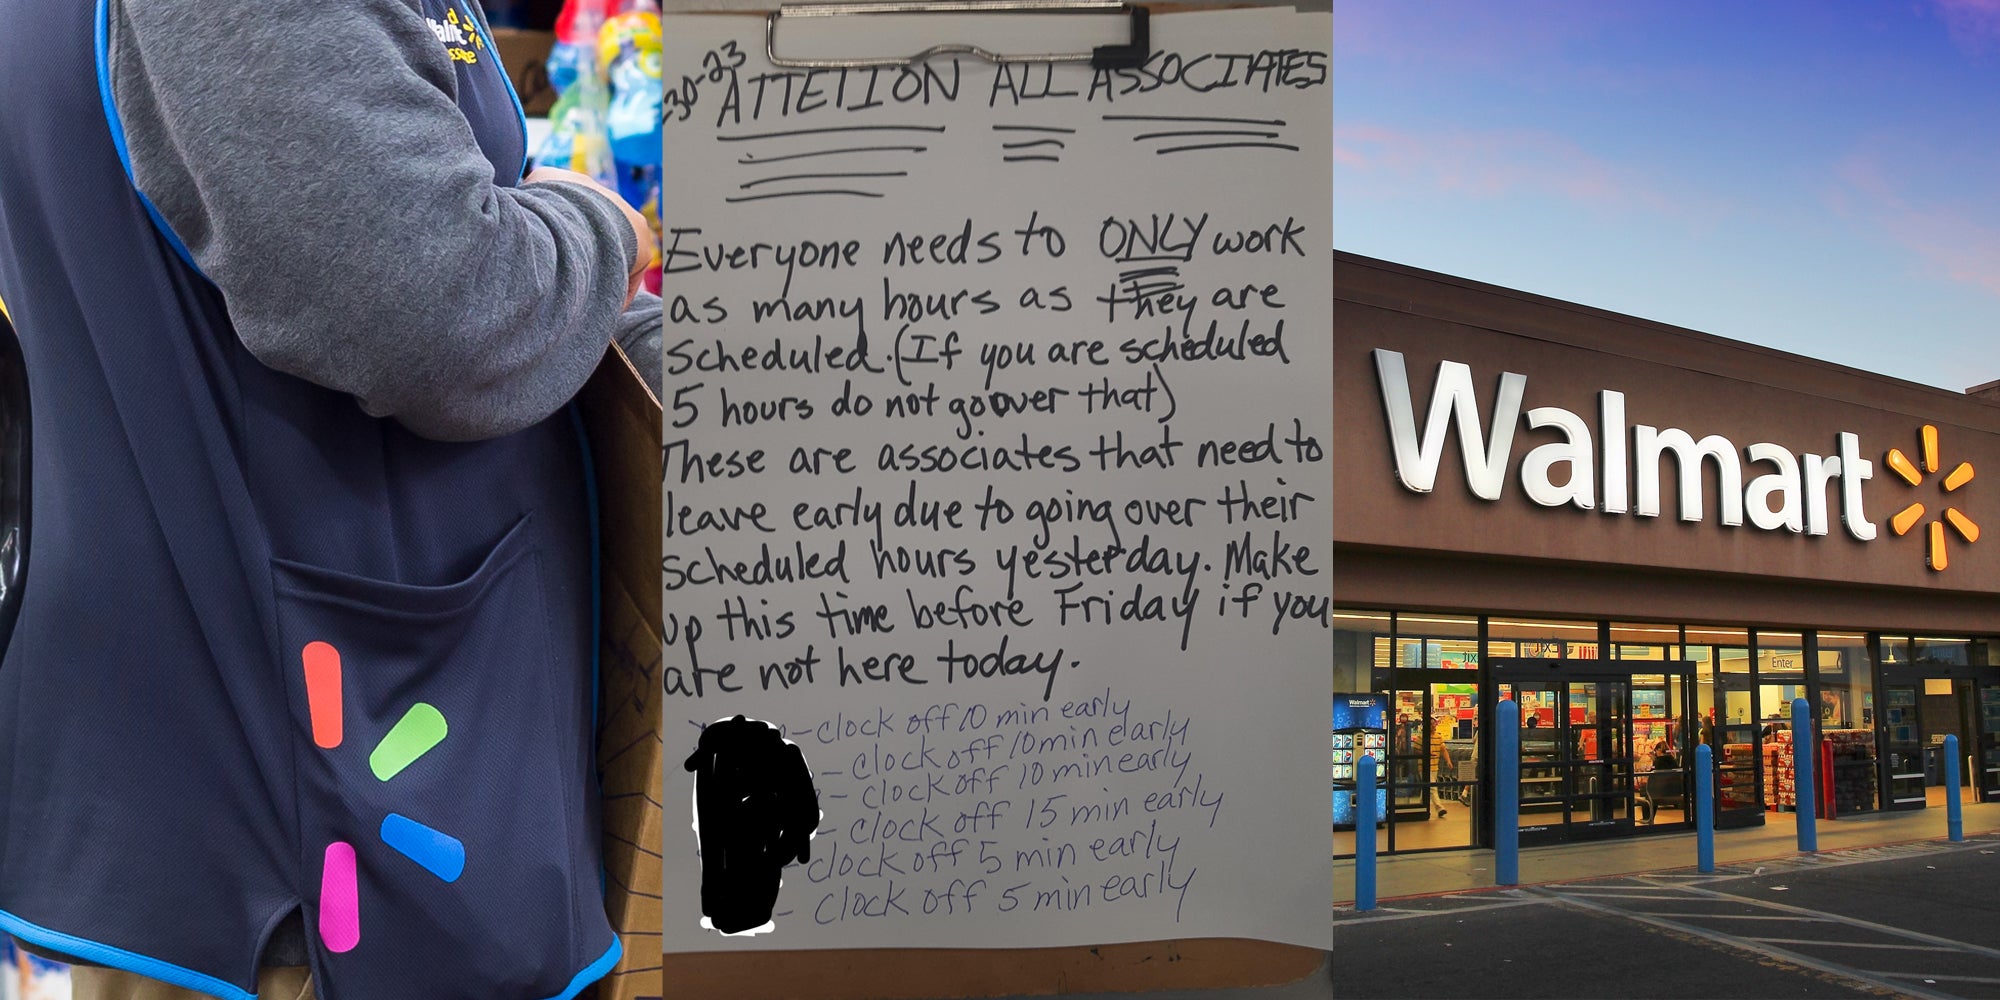 Walmart
30-23
ATTETIION ALL ASSOCIATES
Everyone needs to ONLY work
as many hours as they are
scheduled. (If you are scheduled
5 hours do not go over that)
These are associates that need to
leave early due to going over their
scheduled hours yesterday. Make
up this time before Friday if you
are not here today.
-clock off 10 min early
- clock off 10 min early
- clock off 10 min early
- clock off 15 min early
-clock off 5 min early
- clock off 5 min early
Walmart
Enter
Walmart